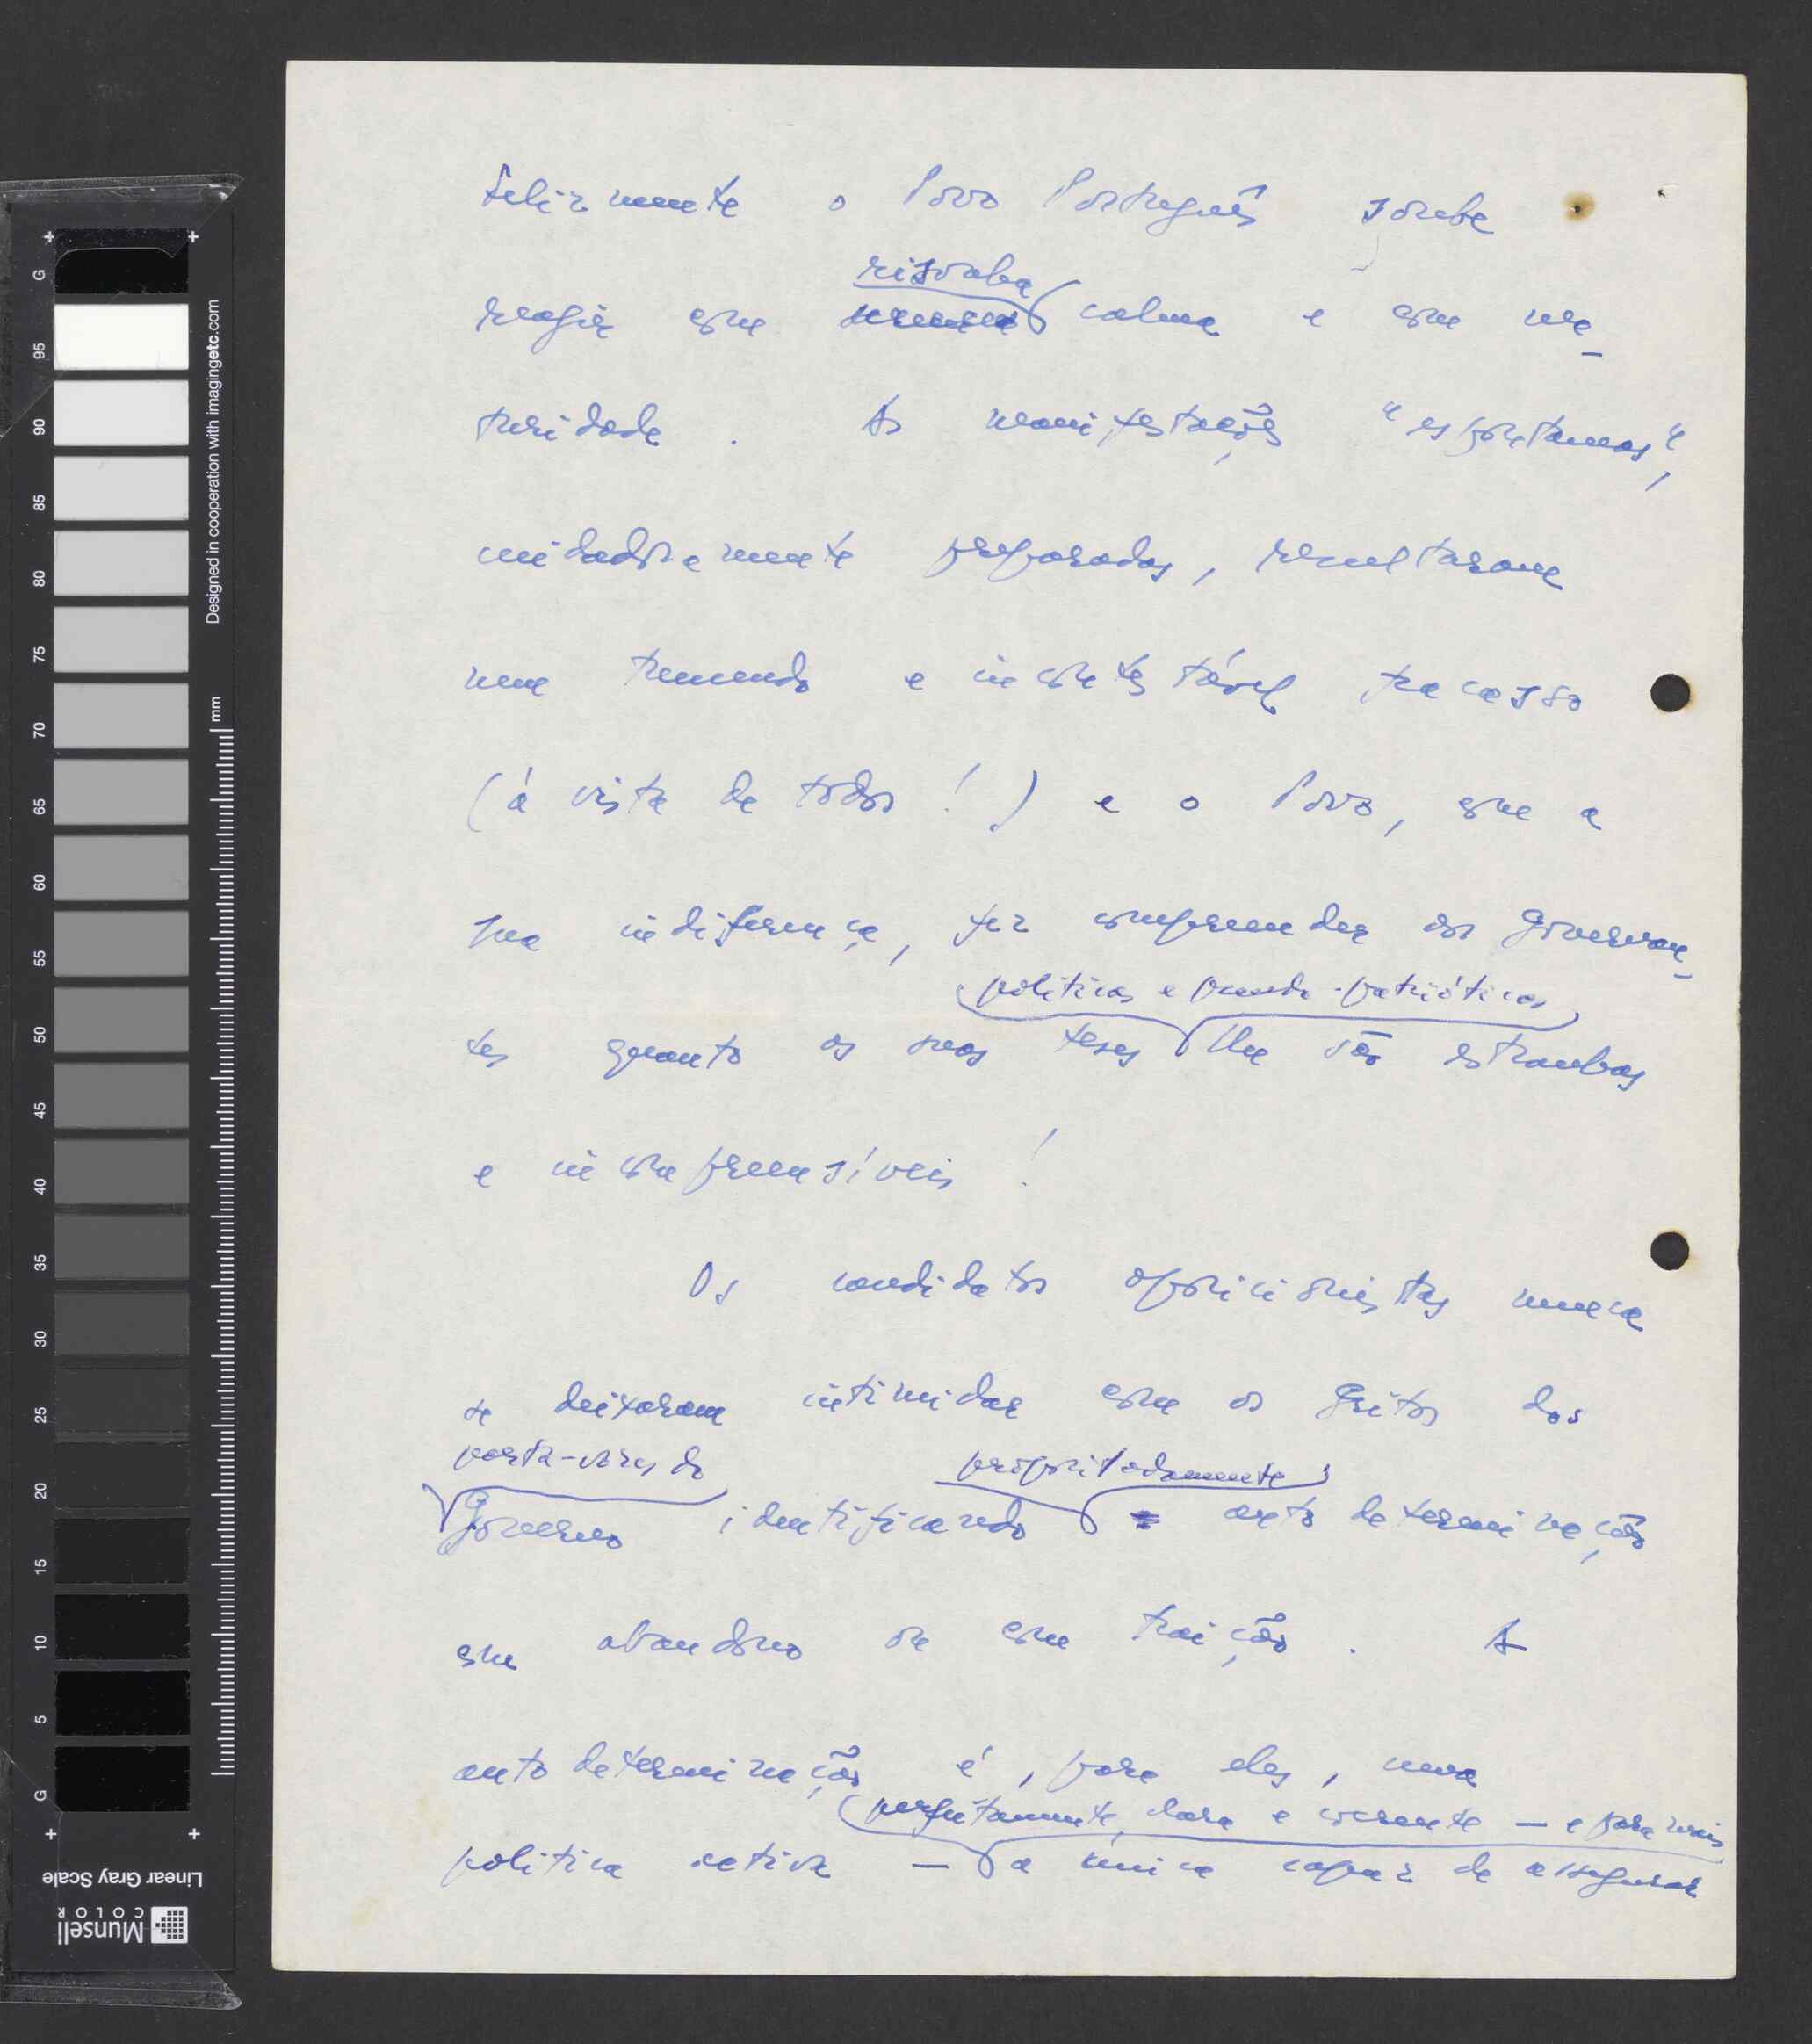 felizmente o Povo Português soube
risonha
reagir com imensa calma e com ma-
turidade. As manifestações "espontaneas",
cuidadosamente preparadas, resultaram
num tremendo e incontestável fracasso
(á vista de todos!) e o Povo, com a
sua indiferença, fez compreender aos Governan-
politicas e pseudo-patrióticas
tes quanto as suas teses lhe são estranhas
e incompreensíveis!
Os candidatos oposicionistas nunca
se deixaram intimidar com os gritos dos
porta-vozes do propositadamente
Governo identificando autodeterminação
com abandono ou com traição. A
autodeterminação é, para eles, uma
perfeitamente clara e coerente — e para mais
politica activa — a única capaz de assegurar
G 95 90 85 80 75 70 65 60 55 50 45 40 35 30 25 20 15 10 5 G
Designed in cooperation with imagingetc.com
mm
Linear Gray Scale
Munsell
COLOR